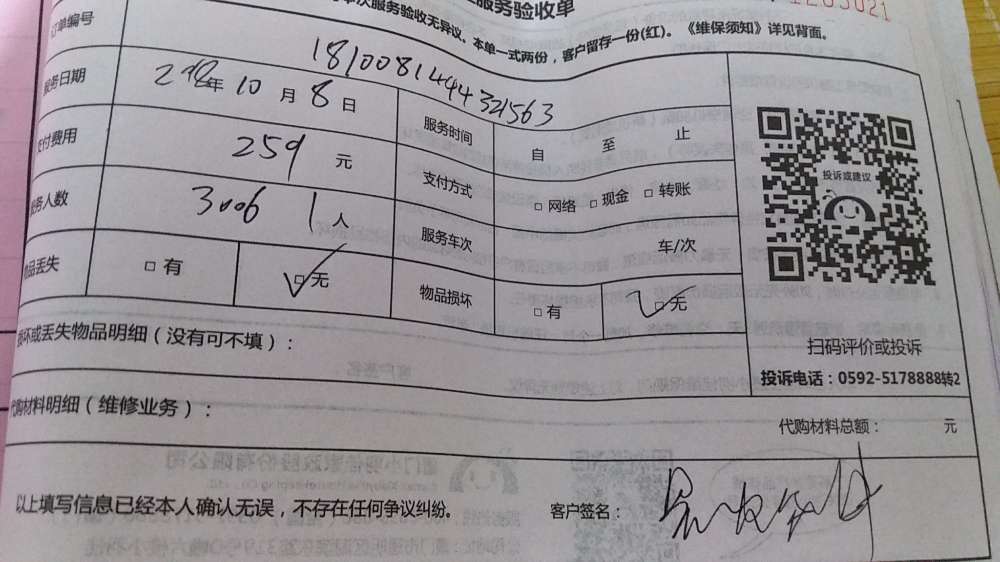 服务验收单
1203021
次服务验收无异议。本单一式两份，客户留存一份(红)。《维保须知》详见背面。
订单编号 1810081444321563
服务日期 2018年10月8日 服务时间 自 至 止
支付费用 259元 支付方式 □网络 □现金 □转账
服务人数 3006 1人 服务车次 车/次
物品丢失 □有 □无 物品损坏 □有 □无
投诉或建议
扫码评价或投诉
投诉电话：0592-5178888转2
损坏或丢失物品明细（没有可不填）：
代购材料明细（维修业务）：
代购材料总额： 元
以上填写信息已经本人确认无误，不存在任何争议纠纷。 客户签名：